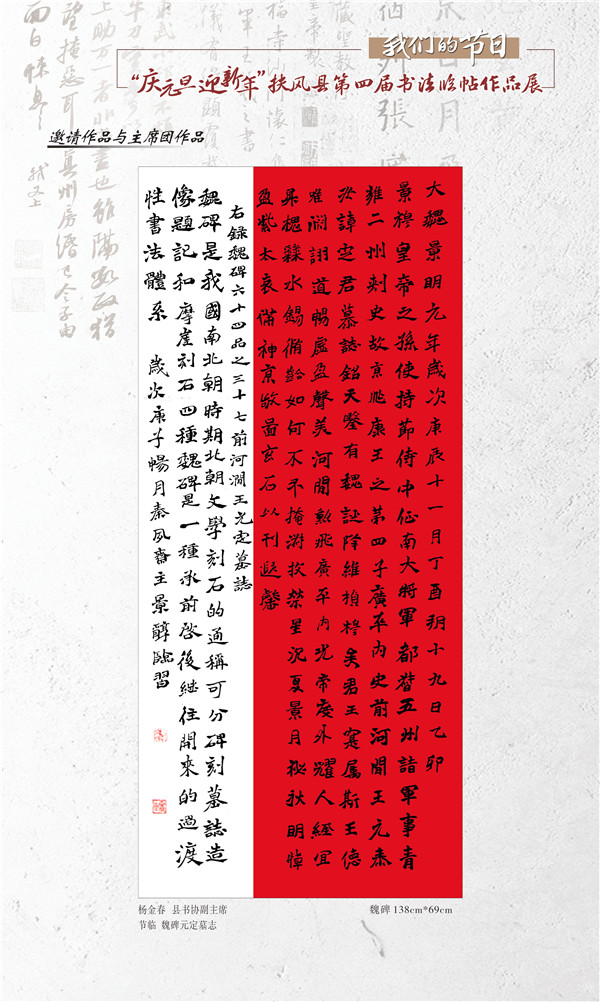 我们的节日
“庆元旦迎新年”扶风县第四届书法临帖作品展
邀请作品与主席团作品
大魏景明元年歲次庚辰十一月丁酉朔十九日乙卯
景穆皇帝之孫使持節侍中征南大將軍都督五州諸軍事青
雍二州刺史故京兆康王之第四子廣平內史前河間王元泰
安諱定君墓誌銘天鑒有魏誕降維楨穆矣君王寔屬斯王德
唯淵詡道暢虛盈聲美河間勳飛廣平內光帝度外耀人經宜
昊槐蘇水錫脩齡如何不弔掩淵攸榮星沉夏景月祕秋明悼
盈紫太哀滿神京敬啚玄石以刊遐馨
右録魏碑六十四品之三十七前河澗王元定墓誌
魏碑是我國南北朝時期北朝文學刻石的通稱可分碑刻墓誌造
像題記和摩崖刻石四種魏碑是一種承前啓後繼往開來的過渡
性書法體系 歲次庚子暢月秦風齋主景醇臨習
杨金春 县书协副主席
节临 魏碑元定墓志
魏碑 138cm*69cm